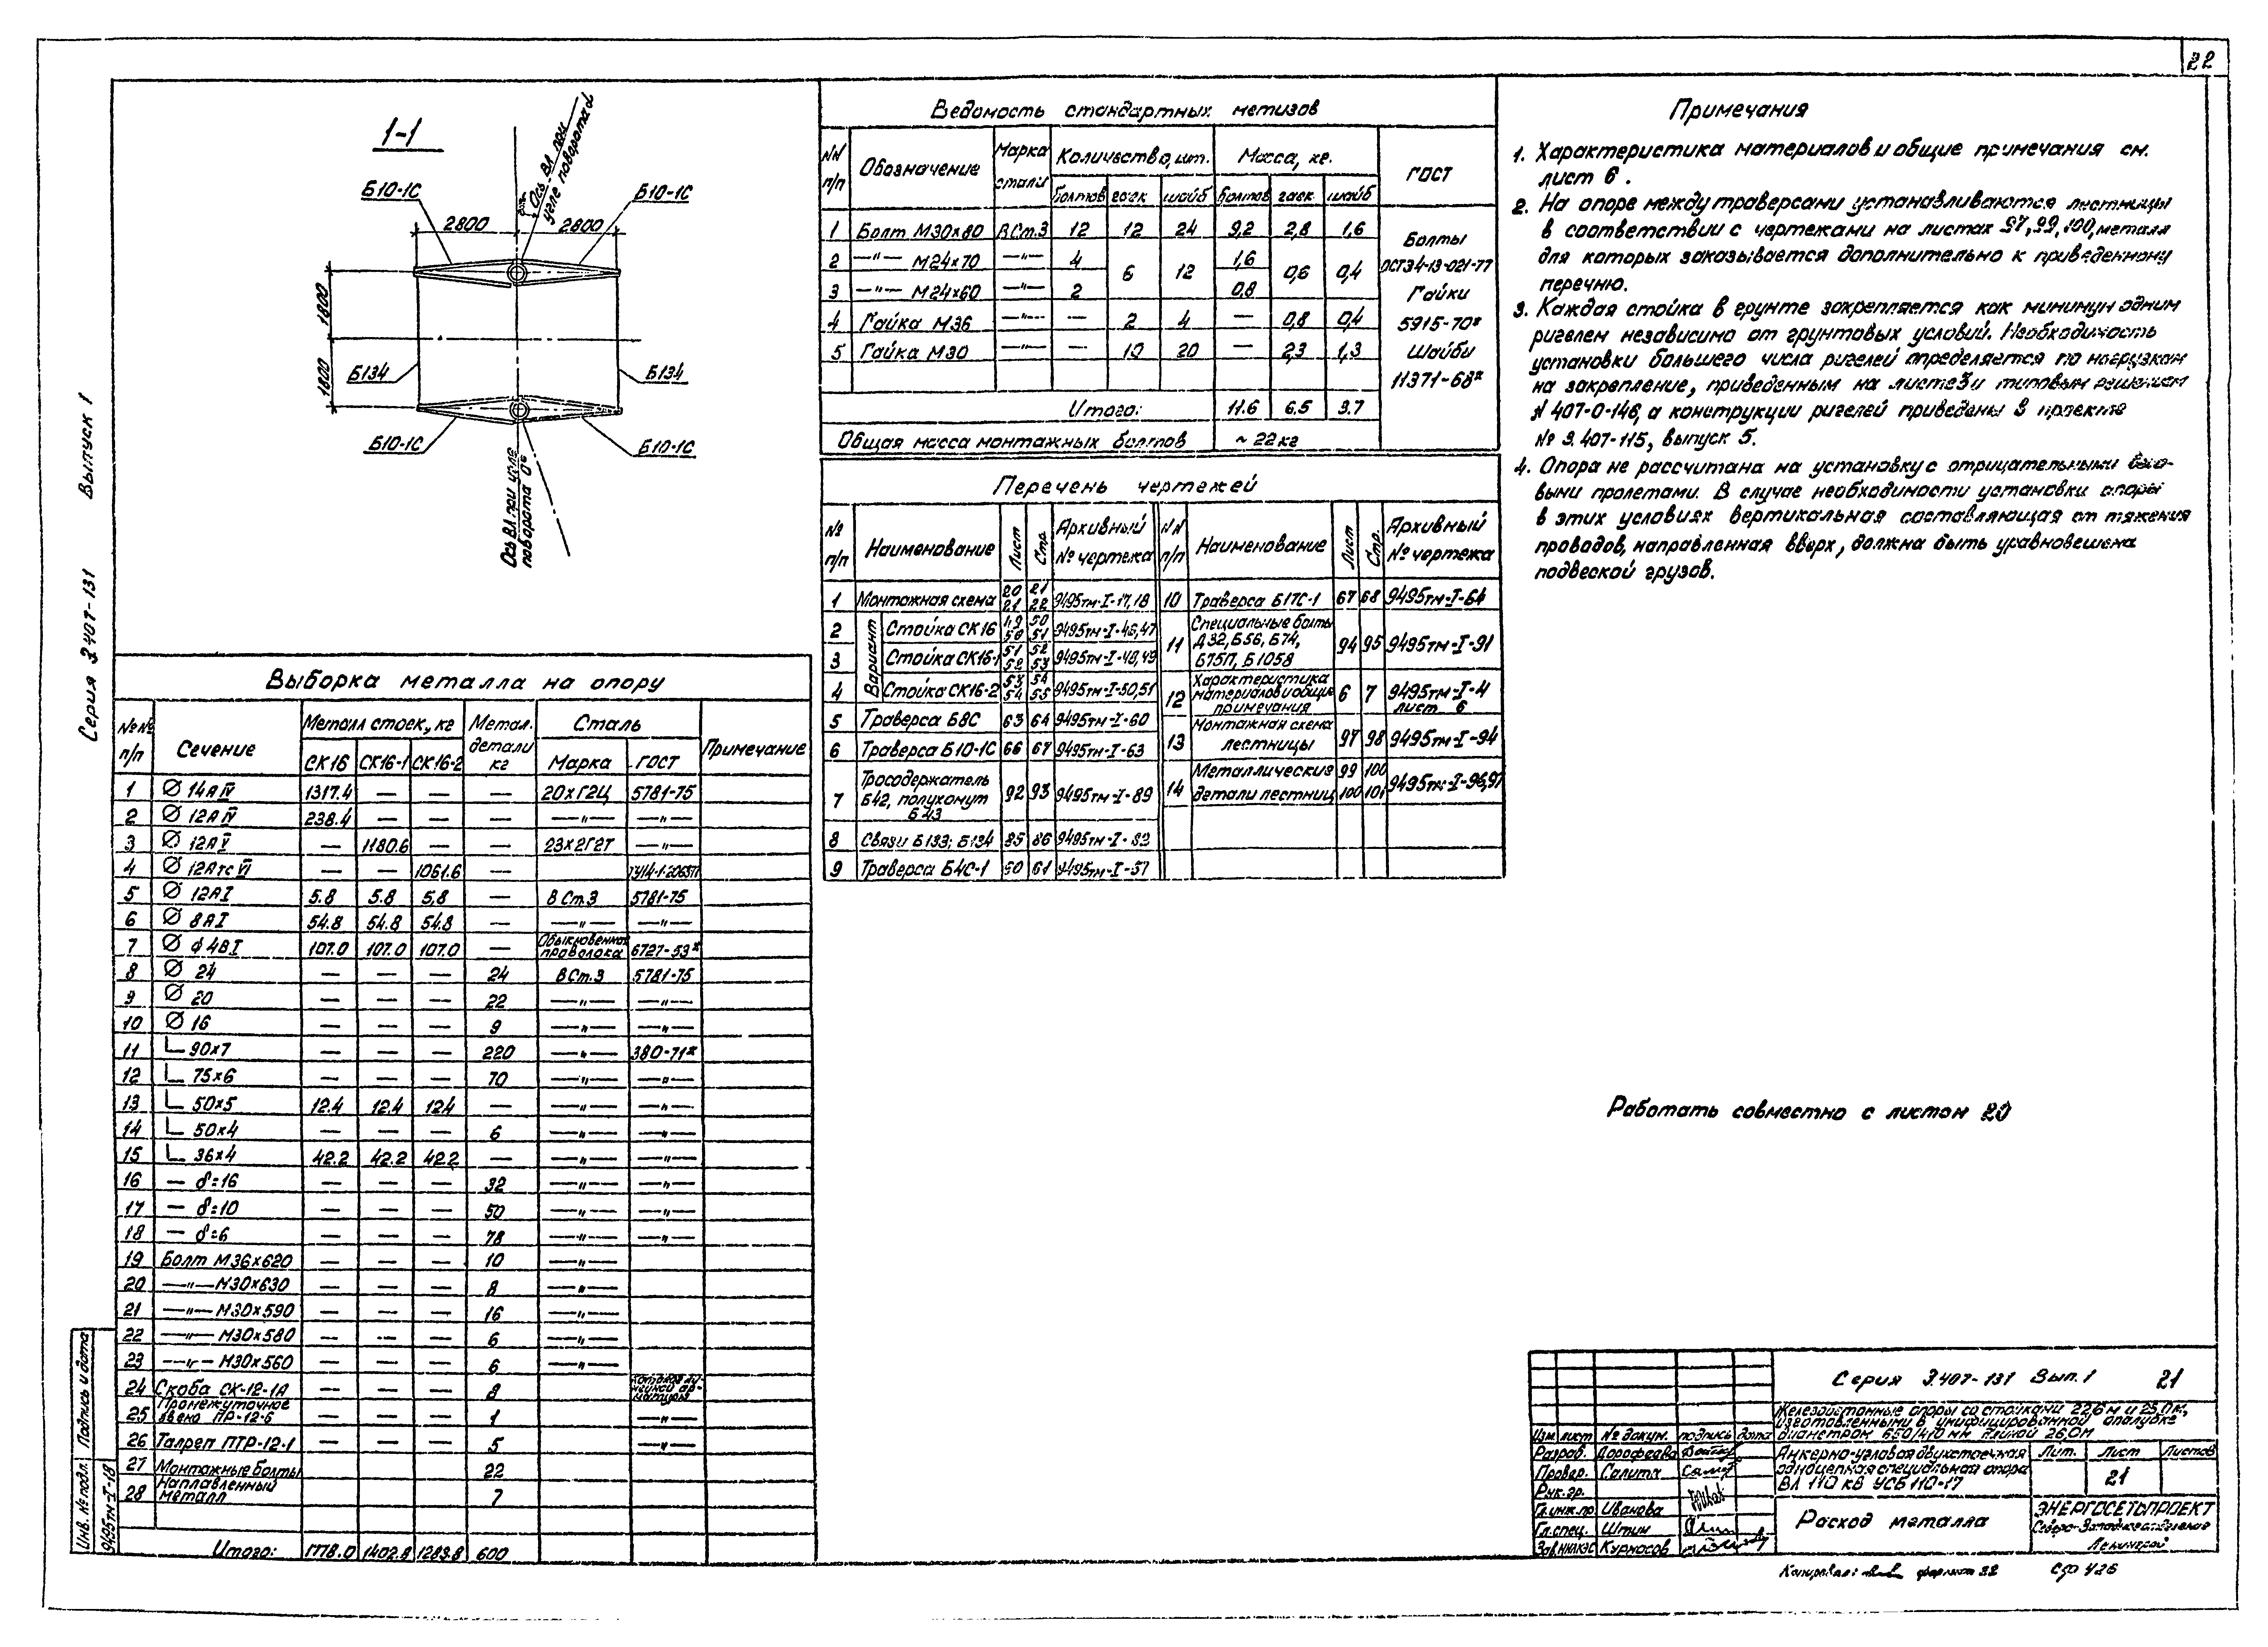 22
Серия 3.407-131 Выпуск 1
1-1
Ось ВЛ при
угле поворота α
Б10-1С
Б10-1С
2800
2800
1800
1800
Б134
Б134
Б10-1С
Б10-1С
Ось ВЛ при угле
поворота 0°
Выборка металла на опору
№№ п/п
Сечение
Металл стоек, кг
Метал. детали кг
Сталь
Примечание
СК16 СК16-1 СК16-2 Марка ГОСТ
1 ∅ 14А IV 1317.4 — — — 20ХГ2Ц 5781-75
2 ∅ 12А IV 238.4 — — — —"— —"—
3 ∅ 12А V — 1180.6 — — 23Х2Г2Т —"—
4 ∅ 12Атс VI — — 1061.6 —
5 ∅ 12А I 5.8 5.8 5,8 — В Ст.3 5781-75
6 ∅ 8А I 54.8 54.8 54.8 — —"— —"—
7 ∅ ф 4В I 107.0 107.0 107.0 — Обыкновенная проволока 6727-53*
8 ∅ 24 — — — 24 ВСт.3 5781-75
9 ∅ 20 — — — 22 —"— —"—
10 ∅ 16 — — — 9 —"— —"—
11 ∟ 90×7 — — — 220 —"— 380-71*
12 ∟ 75×6 — — — 70 —"— —"—
13 ∟ 50×5 12.4 12.4 12.4 — —"— —"—
14 ∟ 50×4 — — — 6 —"— —"—
15 ∟ 36×4 42.2 42.2 42.2 — —"— —"—
16 — δ=16 — — — 32 —"— —"—
17 — δ=10 — — — 50 —"— —"—
18 — δ=6 — — — 78 —"— —"—
19 Болт М36×620 — — — 10 —"—
20 —"— М30×630 — — — 8 —"—
21 —"— М30×590 — — — 16 —"—
22 —"— М30×580 — — — 6 —"—
23 —"— М30×560 — — — 6 —"—
24 Скоба СК-12-1А — — — 8 Каталог линейной арматуры
25 Промежуточное звено ПР-12-6 — — — 1 —"—
26 Талреп ПТР-12-1 — — — 5 —"—
27 Монтажные болты 22
28 Наплавленный металл 7
Итого: 1778.0 1402.8 1283.8 600
Ведомость стандартных метизов
№№ п/п
Обозначение
Марка стали
Количество, шт.
Масса, кг.
ГОСТ
болтов гаек шайб болтов гаек шайб
1 Болт М30×80 В Ст.3 12 12 24 9,2 2,8 1,6
2 —"— М24×70 —"— 4 6 12 1,6 0,6 0,4
3 —"— М24×60 —"— 2 0,8
4 Гайка М36 —"— — 2 4 — 0,8 0,4
5 Гайка М30 —"— — 10 20 — 2,3 1,3
Болты
ОСТ34-13-021-77
Гайки
5915-70*
Шайбы
11371-68*
Итого: 11.6 6.5 3.7
Общая масса монтажных болтов ~22кг
Перечень чертежей
№ п/п
Наименование
Лист
Стр.
Архивный № чертежа
№№ п/п
Наименование
Лист
Стр.
Архивный № чертежа
Вариант
1 Монтажная схема 20 21 21 22 9495тм-I-17,18
2 Стойка СК16 49 50 50 51 9495тм-I-46,47
3 Стойка СК16-1 51 52 52 53 9495тм-I-48,49
4 Стойка СК16-2 53 54 54 55 9495тм-I-50,51
5 Траверса Б8С 63 64 9495тм-I-60
6 Траверса Б10-1С 66 67 9495тм-I-63
7 Тросодержатель Б42, полухомут Б43 92 93 9495тм-I-89
8 Связи Б133; Б134 85 86 9495тм-I-82
9 Траверса Б4С-1 60 61 9495тм-I-57
10 Траверса Б17С-1 67 68 9495тм-I-64
11 Специальные болты Д32, Б56, Б74, Б75П, Б105В 94 95 9495тм-I-91
12 Характеристика материалов и общие примечания 6 7 9495тм-I-4 лист 6
13 Монтажная схема лестницы 97 98 9495тм-I-94
14 Металлические детали лестниц 99 100 100 101 9495тм-I-96,97
Примечания
1. Характеристика материалов и общие примечания см.
лист 6.
2. На опоре между траверсами устанавливаются лестницы
в соответствии с чертежами на листах 97, 99, 100, металл
для которых заказывается дополнительно к приведенному
перечню.
3. Каждая стойка в грунте закрепляется как минимум одним
ригелем независимо от грунтовых условий. Необходимость
установки большего числа ригелей определяется по нагрузкам
на закрепление, приведенным на листе 3 и типовым решением
№ 407-0-146, а конструкции ригелей приведены в проекте
№ 3.407-115, выпуск 5.
4. Опора не рассчитана на установку с отрицательными весо-
выми пролетами. В случае необходимости установки опоры
в этих условиях вертикальная составляющая от тяжения
проводов, направленная вверх, должна быть уравновешена
подвеской грузов.
Работать совместно с листом 20
Серия 3.407-131 Вып. 1 21
Железобетонные опоры со стойками 22,6 м и 25,0 м,
изготовленными в унифицированной опалубке
диаметром 650/410 мм длиной 26.0м
Изм. лист № докум. подпись дата
Разраб. Дорофеева
Провер. Салита
Рук. гр.
Гл.инж.пр Иванова
Гл.спец. Штин
Курносов
Анкерно-угловая двухстоечная
одноцепная специальная опора
ВЛ 110 кВ УСБ 110-17
Лит. Лист Листов
21
Расход металла
ЭНЕРГОСЕТЬПРОЕКТ
Северо-Западное отделение
Ленинград
Копировал: формат 22
Инв. № подл. Подпись и дата
9495тм-I-18